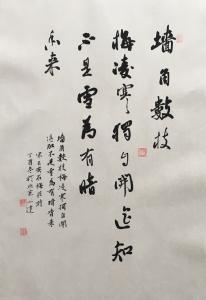 墙角数枝
梅凌寒独自开遥知
不是雪为有暗
香来
墙角数枝梅凌寒独自开
遥知不是雪为有暗香来
宋王安石梅花诗